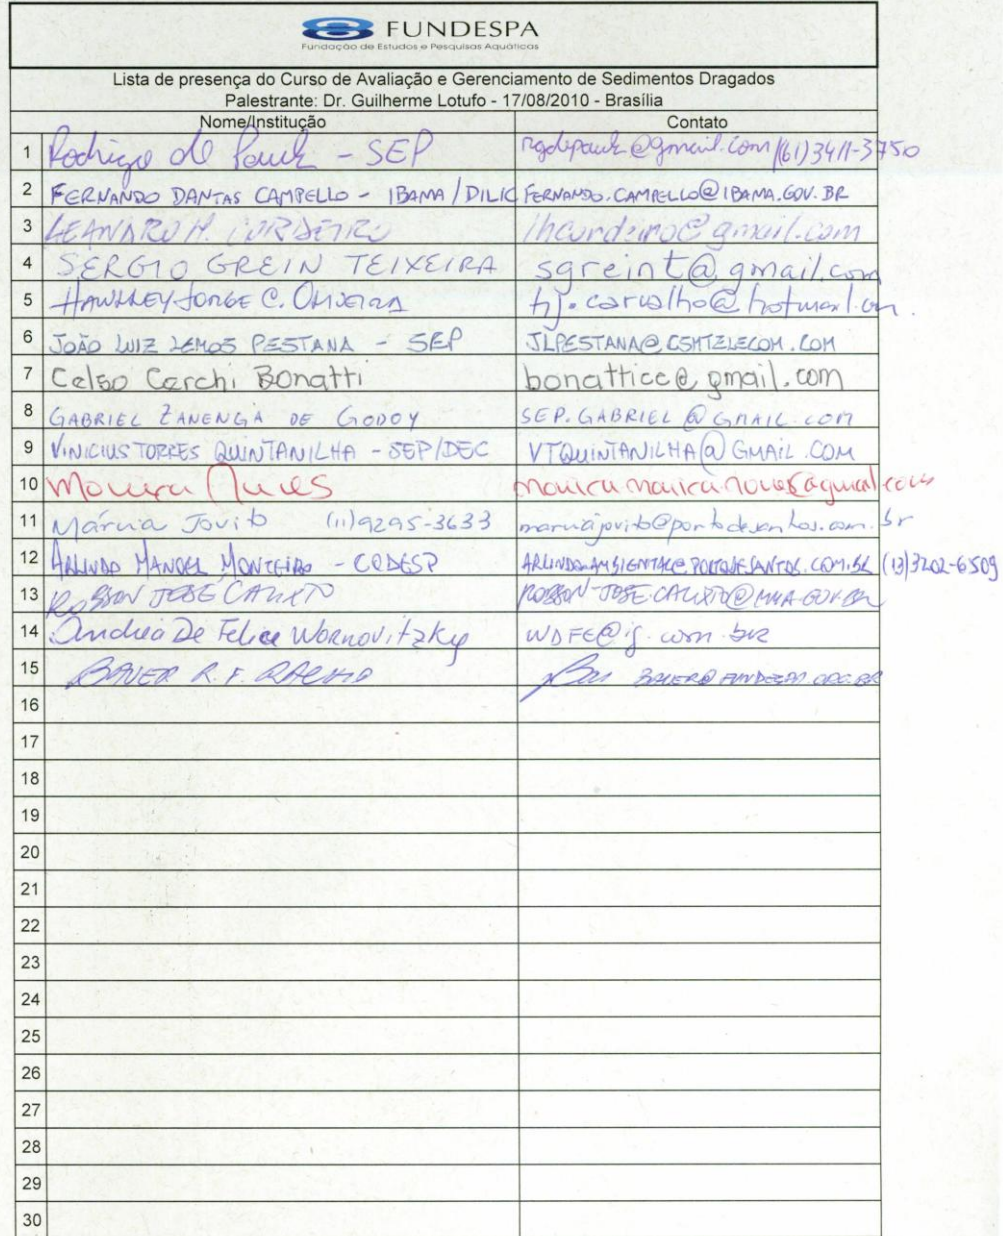 FUNDESPA
Fundação de Estudos e Pesquisas Aquáticas
Lista de presença do Curso de Avaliação e Gerenciamento de Sedimentos Dragados
Palestrante: Dr. Guilherme Lotufo - 17/08/2010 - Brasília
Nome/Instituição Contato
1 Rodrigo de Paula - SEP @gmail.com (61)3411-3750
2 FERNANDO DANTAS CAMPELLO - IBAMA/DILIC FERNANDO.CAMPELLO@IBAMA.GOV.BR
3 LEANDRO H. CORDEIRO lhcordeiro@gmail.com
4 SERGIO GREIN TEIXEIRA sgreint@gmail.com
5 JORGE C. OLIVEIRA hj.carvalho@hotmail.com
6 JOÃO LUIZ LEMOS PESTANA - SEP JLPESTANA@CSMTELECOM.COM
7 Celso Carchi Bonatti bonatticc@gmail.com
8 GABRIEL ZANENGA DE GODOY SEP.GABRIEL@GMAIL.COM
9 VINICIUS TORRES QUINTANILHA - SEP/DEC VTQUINTANILHA@GMAIL.COM
10 Nunes
11 Márcia Jovito (11)9295-3633 marciajovito@portodesantos.com.br
12 ARLINDO MANOEL MONTEIRO - CODESP (13)3202-6509
13 ROBSON JOSE CALIXTO ROBSON-JOSE.CALIXTO@MMA.GOV.BR
14 Andrea De Felice Wornovitzky WDFE@ig.com.br
15 BAUER R. F.
16
17
18
19
20
21
22
23
24
25
26
27
28
29
30